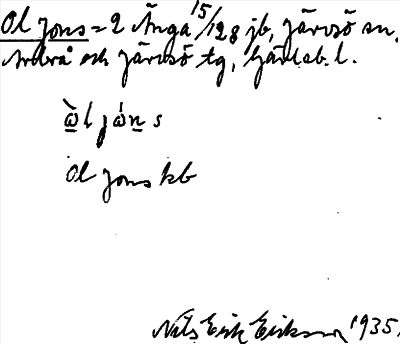 Ol Jons = 2 Änga 15/128 jb, Järvsö sn,
Arbrå och Järvsö tg, Gävleb. l.
ὼl jὼn s
Ol Jons kb
Nils Erik Eriksson 1935.